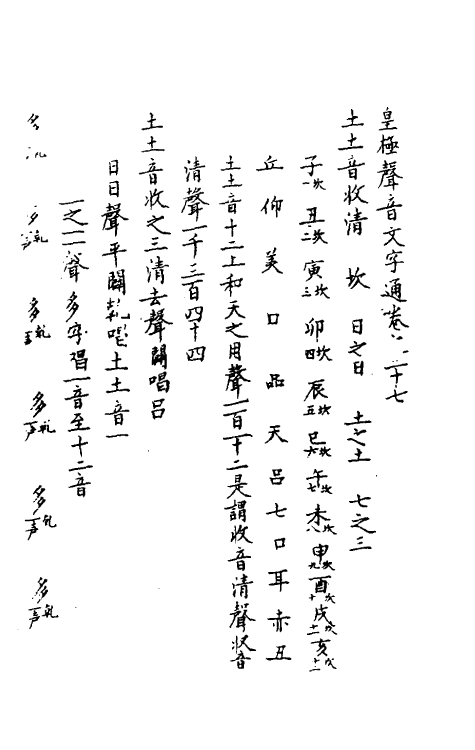 皇極聲音文字通卷之二十七
土土音收清 坎 日之日 土之土 七之三
子一坎 丑二坎 寅三坎 卯四坎 辰五坎 巳六坎 午七坎 未八坎 申九坎 酉十坎 戌十一坎 亥十二坎
丘仰美口品天呂七口耳赤丑
土土音十二上和天之用聲一百一十二是謂收音清聲收音
清聲一千三百四十四
土土音收之三清去聲闢唱呂
日日聲平闢乾唱土土音一
一之一聲多字唱一音至十二音
多 多乾一聲 多乾一聲 多乾一聲 多乾一聲 多乾一聲